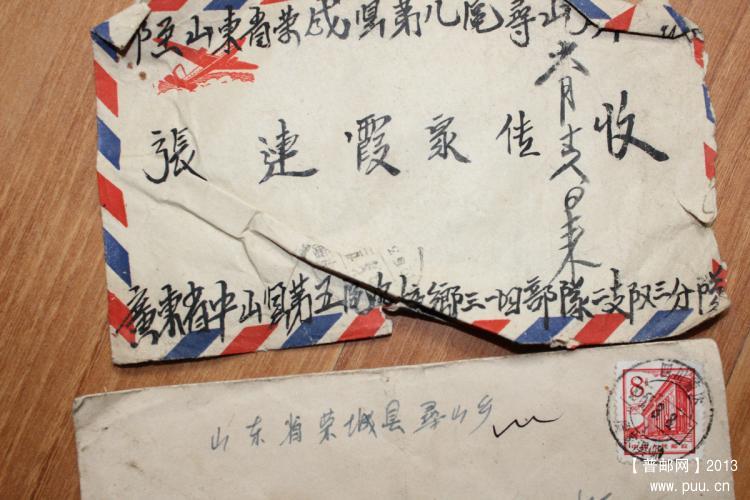 山東省荣成县第八区尋山
張連霞家信收
六月
日来
廣東省中山县第五区
鄉三一四部隊二支队三分隊
山东省荣城县寻山乡
8
【普邮网】2013
www.puu.cn